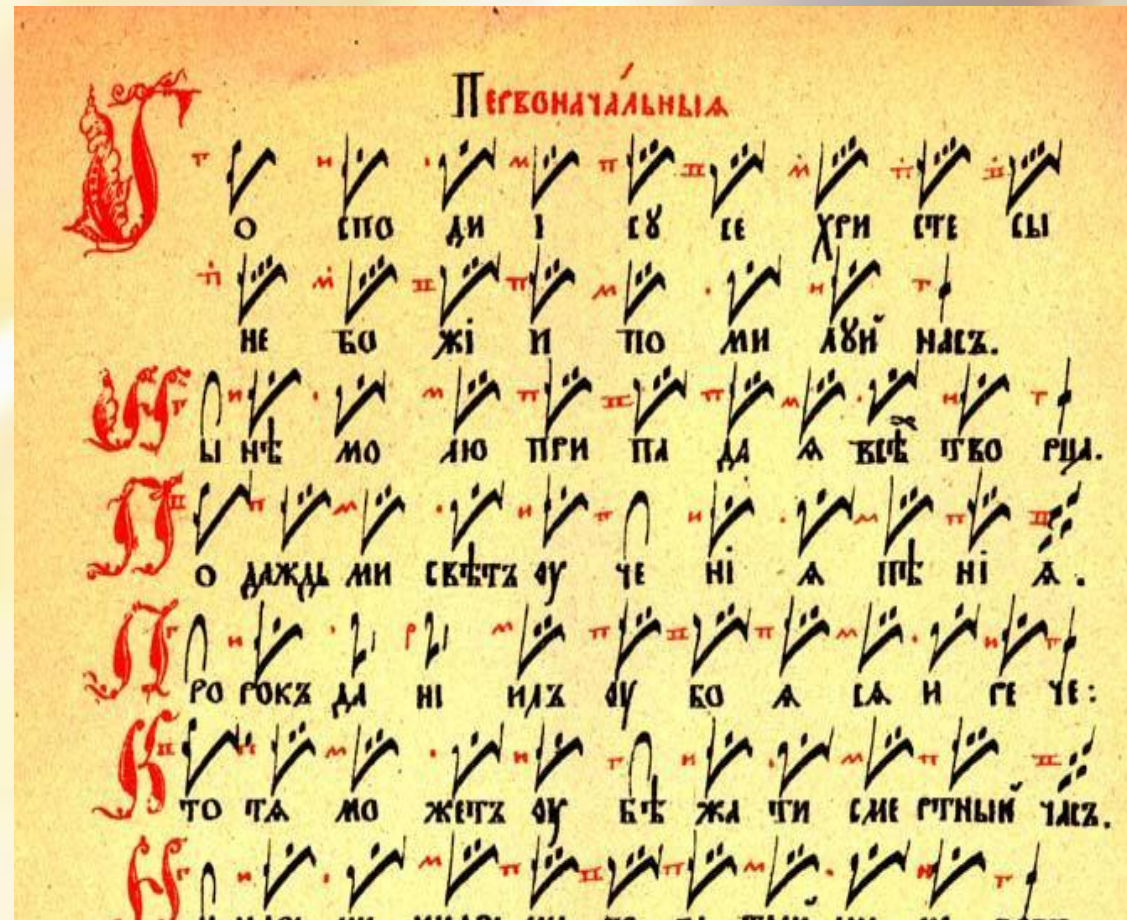 Первонача́льныѧ
Го спо ди І сꙋ се хри сте сы
не бо жі и по ми лꙋй насъ.
Ны нѣ мо лю при па да ѧ всѣ тво рца.
По даждь ми свѣтъ оу че ні ѧ пѣ ні ѧ.
Про рокъ да ні илъ оу бо ѧ сѧ и ре че:
Кто тѧ мо жетъ оу бѣ жа ти сме ртный часъ.